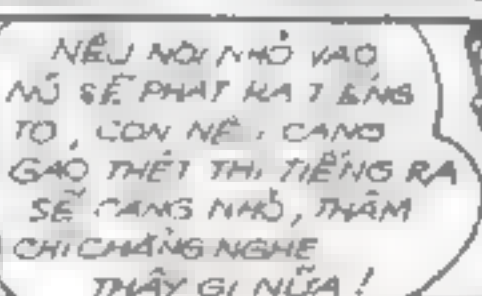 NẾU NÓI NHỎ VÀO
NÓ SẼ PHÁT RA TIẾNG
TO, CÒN NẾU CÀNG
GÀO THÉT THÌ TIẾNG RA
SẼ CÀNG NHỎ, THẬM
CHÍ CHẲNG NGHE
THẤY GÌ NỮA!